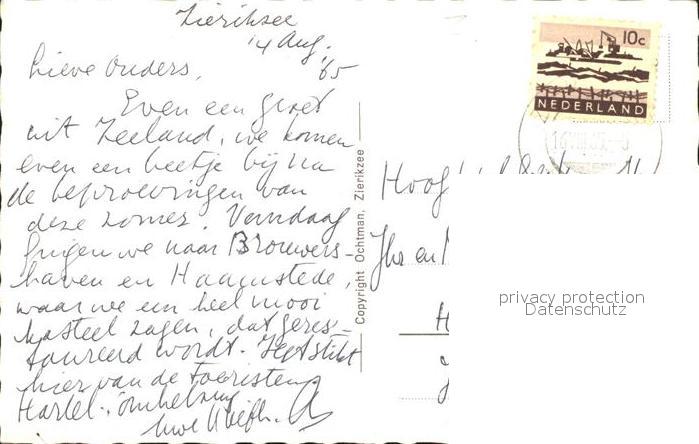 Zierikzee
14 Aug. '65
Lieve Ouders,
Even een groet
uit Zeeland, we komen
even een beetje bij na
de beproevingen van
deze zomer. Vandaag
gingen we naar Brouwers-
haven en Haamstede,
waar we een heel mooi
kasteel zagen, dat geres-
taureerd wordt. Het stikt
hier van de toeristen.
Hartel. omhelzing
Copyright Ochtman, Zierikzee
10c
NEDERLAND
Hoog
Jhr en
privacy protection
Datenschutz